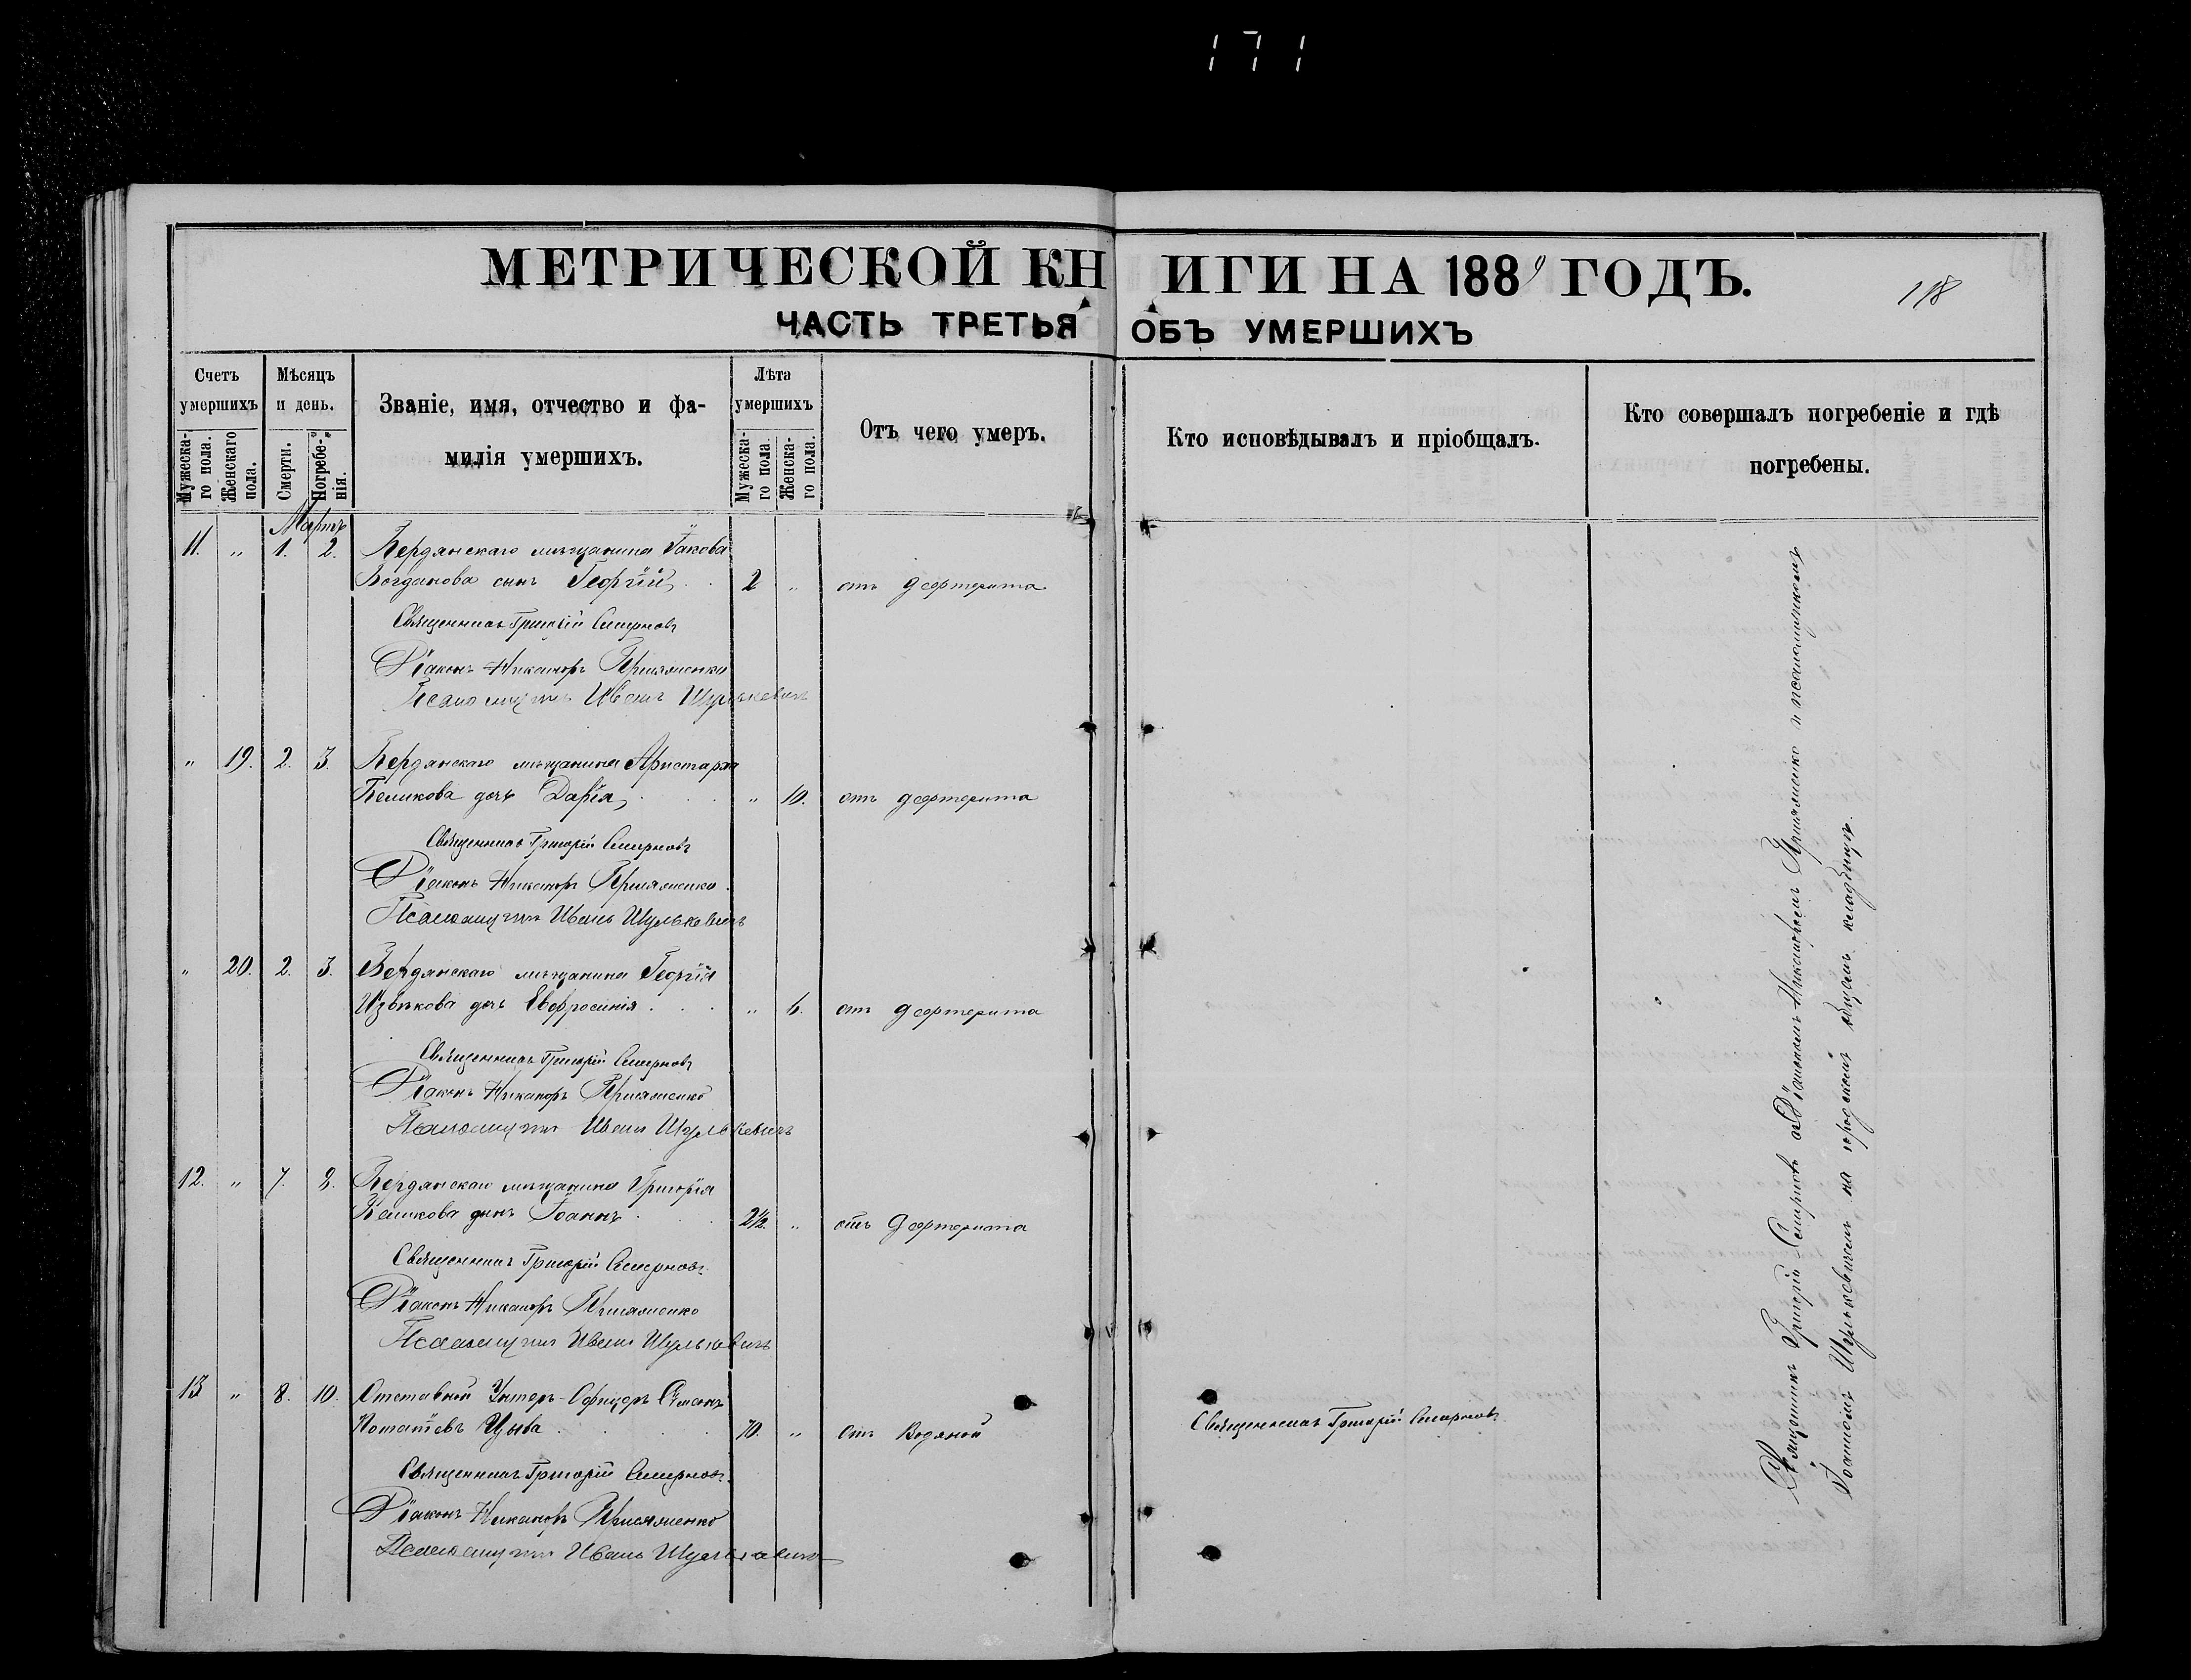 171
МЕТРИЧЕСКОЙ КНИГИ НА 1889 ГОДЪ.
118
ЧАСТЬ ТРЕТЬЯ ОБЪ УМЕРШИХЪ
Счетъ умершихъ
Мужеска-го пола.
Женскаго пола.
Мѣсяцъ и день.
Смерти.
Погребе-нія.
Званіе, имя, отчество и фа-
милія умершихъ.
Лѣта умершихъ
Мужеска-го пола.
Женска-го пола.
Отъ чего умеръ.
Кто исповѣдывалъ и пріобщалъ.
Кто совершалъ погребеніе и гдѣ
погребены.
Мартъ
11. " 1. 2. Бердянскаго мѣщанина Іакова
Богданова сынъ Георгій 2 " отъ дефтерита
Священникъ Григорій Смирновъ
Діаконъ Никаноръ
Псаломщикъ Иванъ Шулькевичъ
" 19. 2. 3. Бердянскаго мѣщанина Аристарха
дочь Дарія " 10. отъ дефтерита
Священникъ Григорій Смирновъ
Діаконъ Никаноръ
Псаломщикъ Иванъ Шулькевичъ
" 20. 2. 3. Бердянскаго мѣщанина Георгія
Извѣкова дочь Евфросинія " 6. отъ дефтерита
Священникъ Григорій Смирновъ
Діаконъ Никаноръ
Псаломщикъ Иванъ Шулькевичъ
12. " 7. 8. Бердянскаго мѣщанина Григорія
сынъ Іоаннъ 2½ " отъ дефтерита
Священникъ Григорій Смирновъ
Діаконъ Никаноръ
Псаломщикъ Иванъ Шулькевичъ
13 " 8. 10. Отставной Унтеръ-Офицеръ Сѵмеонъ
Цыба 70. " отъ водяной
Священникъ Григорій Смирновъ
Священникъ Григорій Смирновъ
Діаконъ Никаноръ
Псаломщикъ Иванъ Шулькевичъ
Священникъ Григорій Смирновъ съ Діакономъ Никаноромъ и псаломщикомъ
Іоанномъ Шулькевичемъ на городскомъ общемъ кладбищѣ.